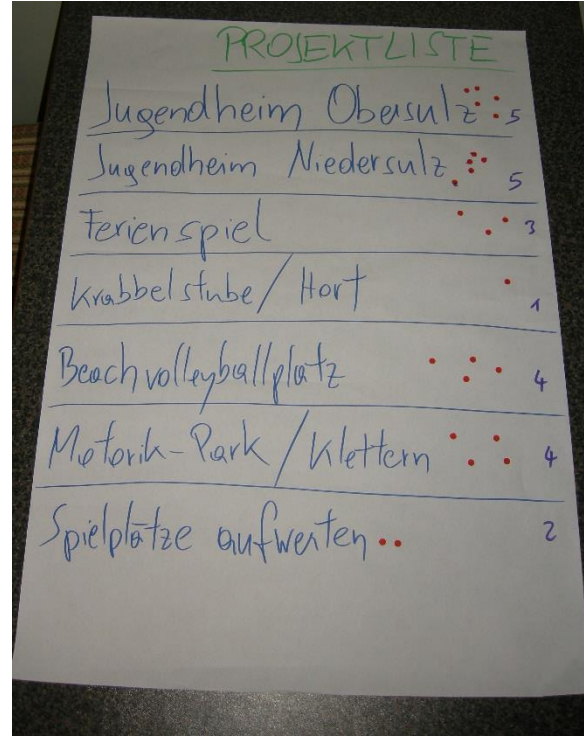 PROJEKTLISTE
Jugendheim Obersulz 5
Jugendheim Niedersulz 5
Ferienspiel 3
Krabbelstube/Hort 1
Beachvolleyballplatz 4
Motorik-Park/Klettern 4
Spielplätze aufwerten 2